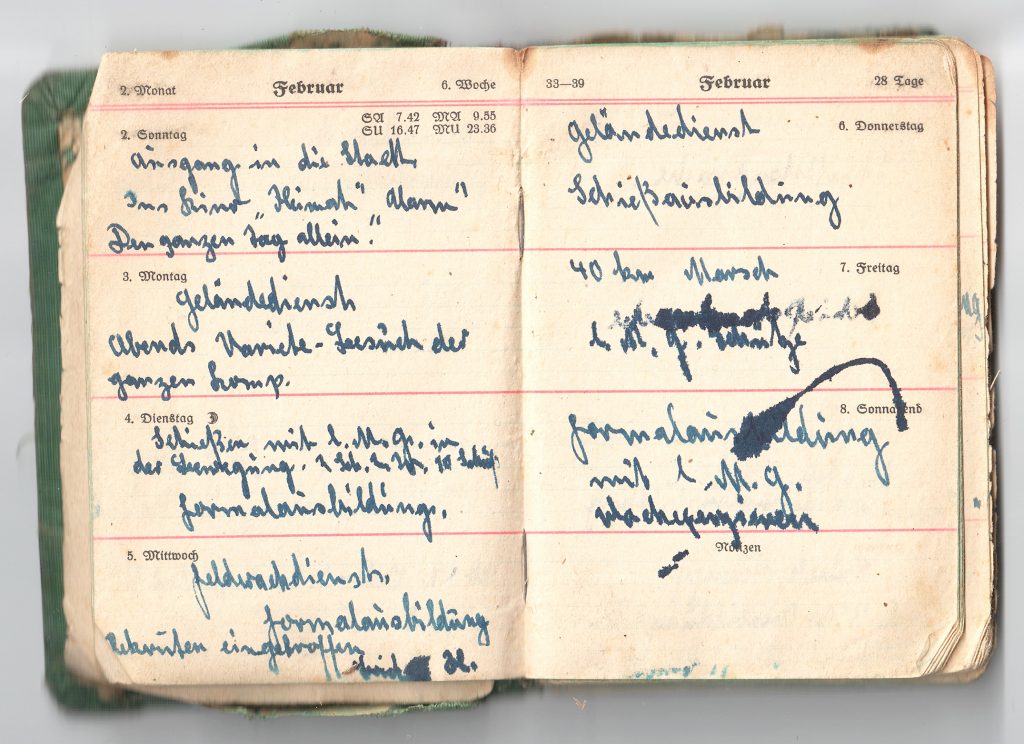 2. Monat Februar 6. Woche
2. Sonntag SA 7.42 MA 9.55
SU 16.47 MU 23.36
Ausgang in die Stadt.
Ins Kino „Heimat" Alarm"
Den ganzen Tag allein."
3. Montag
Geländedienst
Abends Variete-Besuch der
ganzen Komp.
4. Dienstag
Schießen mit l. M. G. in
der Bewegung.
Formalausbildung.
5. Mittwoch
Feldwachdienst.
Formalausbildung
Rekruten eingetroffen
33—39 Februar 28 Tage
6. Donnerstag
Geländedienst
Schießausbildung
7. Freitag
40 km Marsch
l. M. G. Schütze
8. Sonnabend
Formalausbildung
mit l. M. G.
Wachexerzieren
Notizen